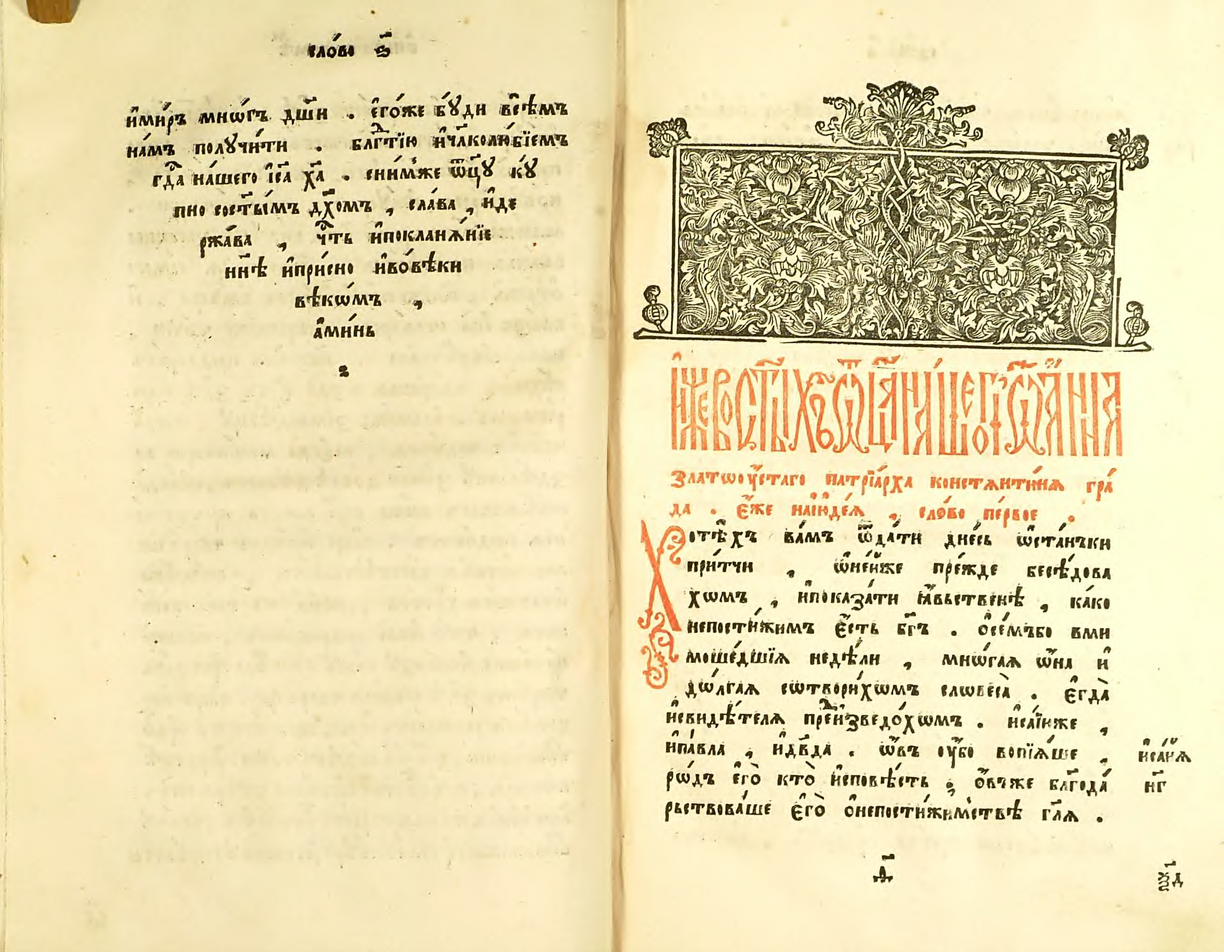 сло́во ѕ҃
и҆ми́ръ мнѡ́гъ дш҃и . є҆го́же бꙋ́ди всѣ́мъ
на́мъ полꙋчи́ти . блгⷣтїю и҆чл҃колю́бїемъ
гд҃а на́шего і҆с҃а х҃а . сни́мже ѻ҆ц҃ꙋ кꙋ
пно состы҃мъ дх҃омъ , сла́ва , и҆де
ржа́ва , чт҃ь и҆поклана́нїе
нн҃ѣ и҆при́сно и҆во́вѣки
вѣкѡ́мъ ,
а҆ми́нь
и҆́же во ст҃ы́хъ ѻ҆ц҃а на́шегѡ і҆ѡа́нна
златоꙋ́стаго патрїа́рха константи́нѧ гра́
да . є҆́же наїꙋдеѧ̀ , сло́во пе́рвое .
Хотѣ́хъ ва́мъ ѿда́ти дне́сь ѡ҆ста́нъки
при́тчи , ѡ҆не́йже пре́жде бесѣ́дова
хѡмъ , и҆показа́ти ꙗ҆́вьственѣ , ка́ко
непостижи́мъ є҆́сть бг҃ъ . ѻ҆се́мъбо вми
моше́дшїѧ недѣ́ли , мнѡ́гаѧ ѡ҆́на и҆
дѡ́лгаѧ сотвори́хѡмъ словеса̀ . є҆гда̀
и҆свидѣ́телѧ преи҆зведо́хѡмъ . и҆са́їнже ,
и҆па́вла , и҆дв҃да . ѡ҆́въ ᲂу҆́бо вопїѧ́ше ,
рѡ́дъ є҆го̀ кто̀ и҆сповѣ́сть ; ѻ҆́въже благода́
рьствова́ше є҆го̀ ѻ҆непостижи́мствѣ гл҃ѧ .
и҆са́їѧ
нг҃
д҃